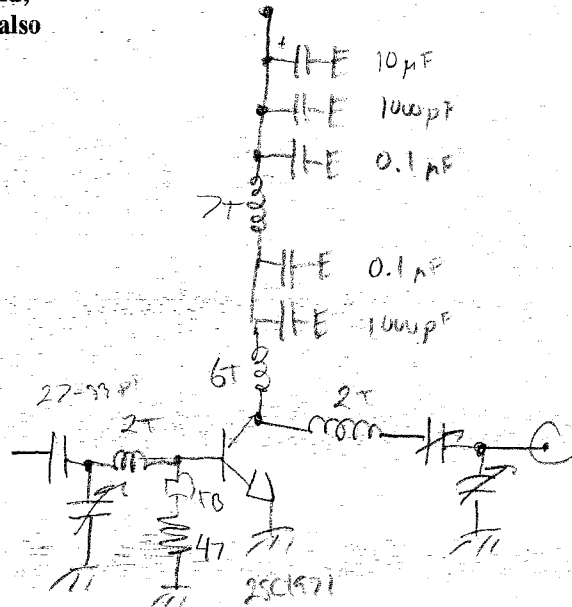 also
10µF
1000pF
0.1µF
7T
0.1µF
1000pF
6T
2T
27-33pF
2T
FB
47
2SC1971